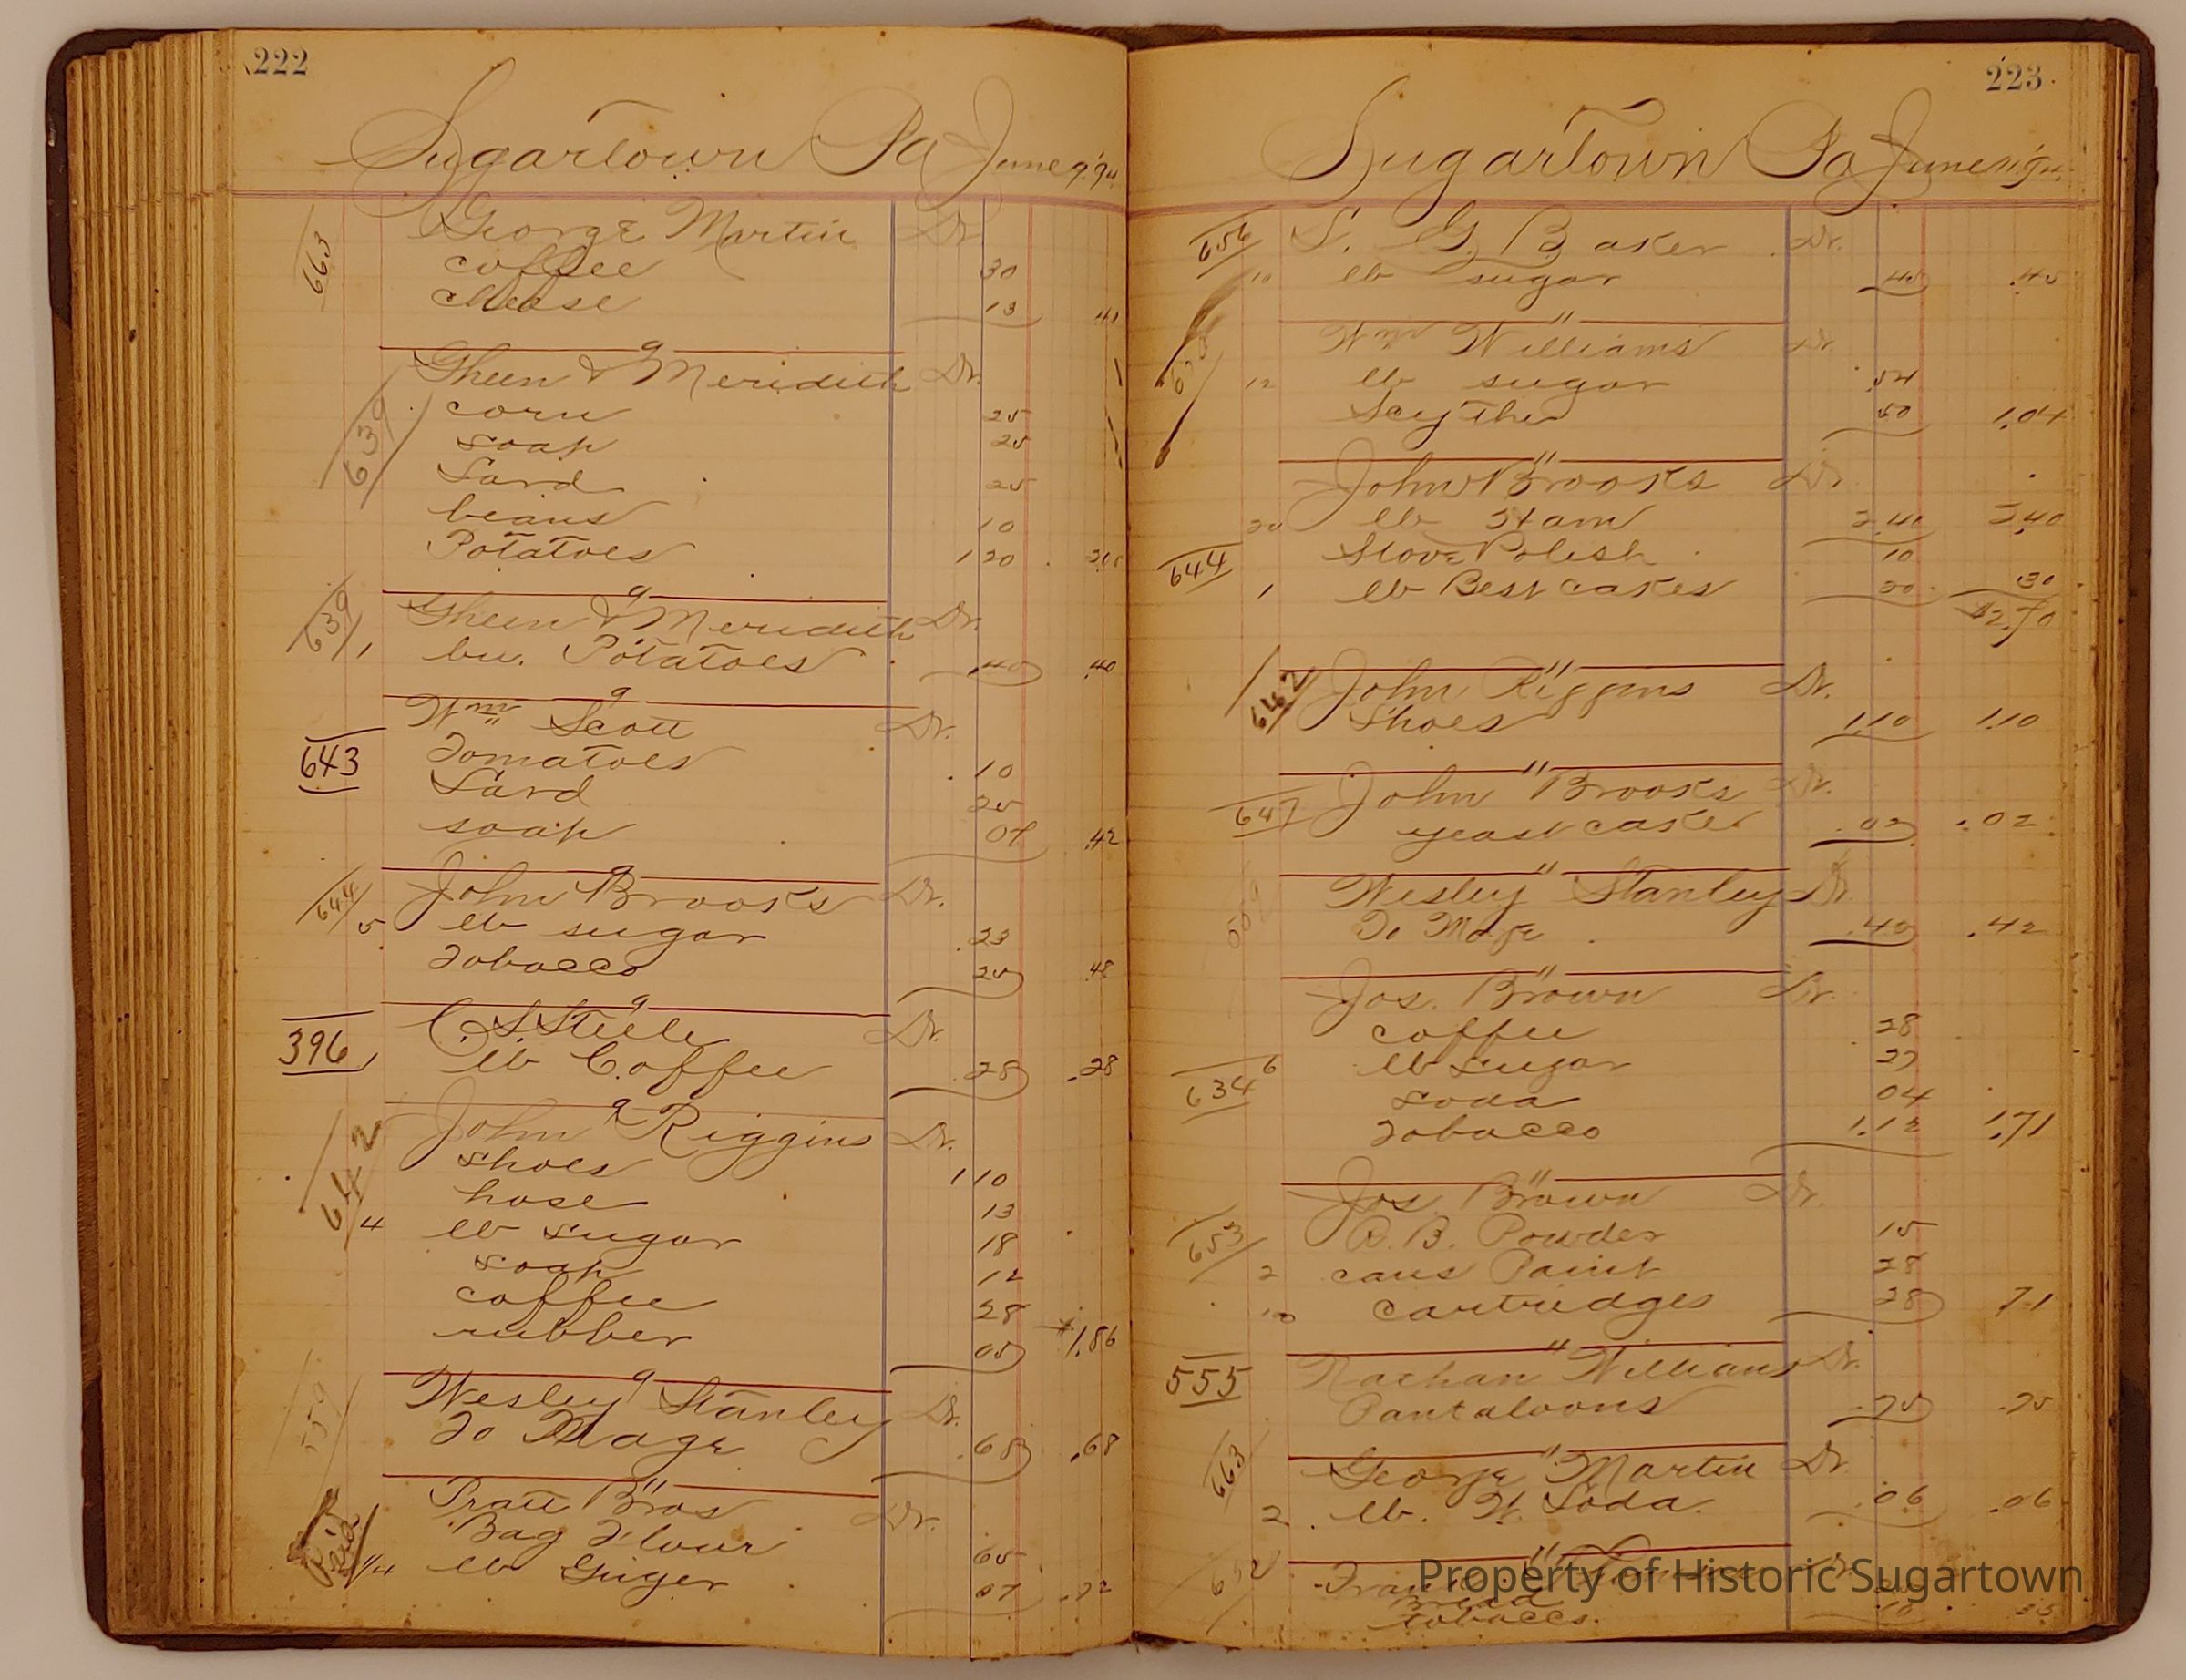 222
Sugartown Pa June 9 '94
663 George Martin Dr.
coffee 30
cheese 13
9
Gheen & Meridith Dr.
639 corn 25
soap 25
Lard 25
beans 10
Potatoes 1 20
9
Gheen & Meridith Dr.
639 1 bu. Potatoes .40 .40
9
Wm Scott Dr.
643 Tomatoes .10
Lard 25
soap 07 .42
9
644 John Brooks Dr.
5 lb sugar .23
Tobacco 25 .48
9
C. S. Steele Dr.
396 1 lb Coffee .28 .28
9
John Riggins Dr.
642 shoes 1 10
hose 13
4 lb sugar 18
soap 12
coffee 28
rubber 05 1.86
9
559 Wesley Stanley Dr.
To Mage .68 .68
11
Pratt Bros Dr.
Paid Bag Flour 65
1/4 lb Ginger 07 .72
223
Sugartown Pa June 11 '94
656 S. G. Baker Dr.
10 lb sugar 45 .45
"
Wm Williams Dr.
12 lb sugar .54
Scythe 50 1.04
"
John Brooks Dr.
20 lb Ham 2.40 2.40
644 Stove Polish 10
1 lb Best cakes 20 30
$2.70
"
642 John Riggins Dr.
Shoes 1.10 1.10
"
John Brooks Dr.
647 yeast cake .02 .02
"
559 Wesley Stanley Dr.
To Mage .42 .42
"
Jos. Brown Dr.
coffee 28
634 6 lb sugar 27
soda 04
Tobacco 1.12 1.71
"
Jos. Brown Dr.
653 B. B. Powder 15
2 cans Paint 28
cartridges 28 71
"
555 Nathan Williams Dr.
Pantaloons .75 .75
"
663 George Martin Dr.
2 lb. W. Soda. .06 .06
"
652
Bread
tobacco.
Property of Historic Sugartown